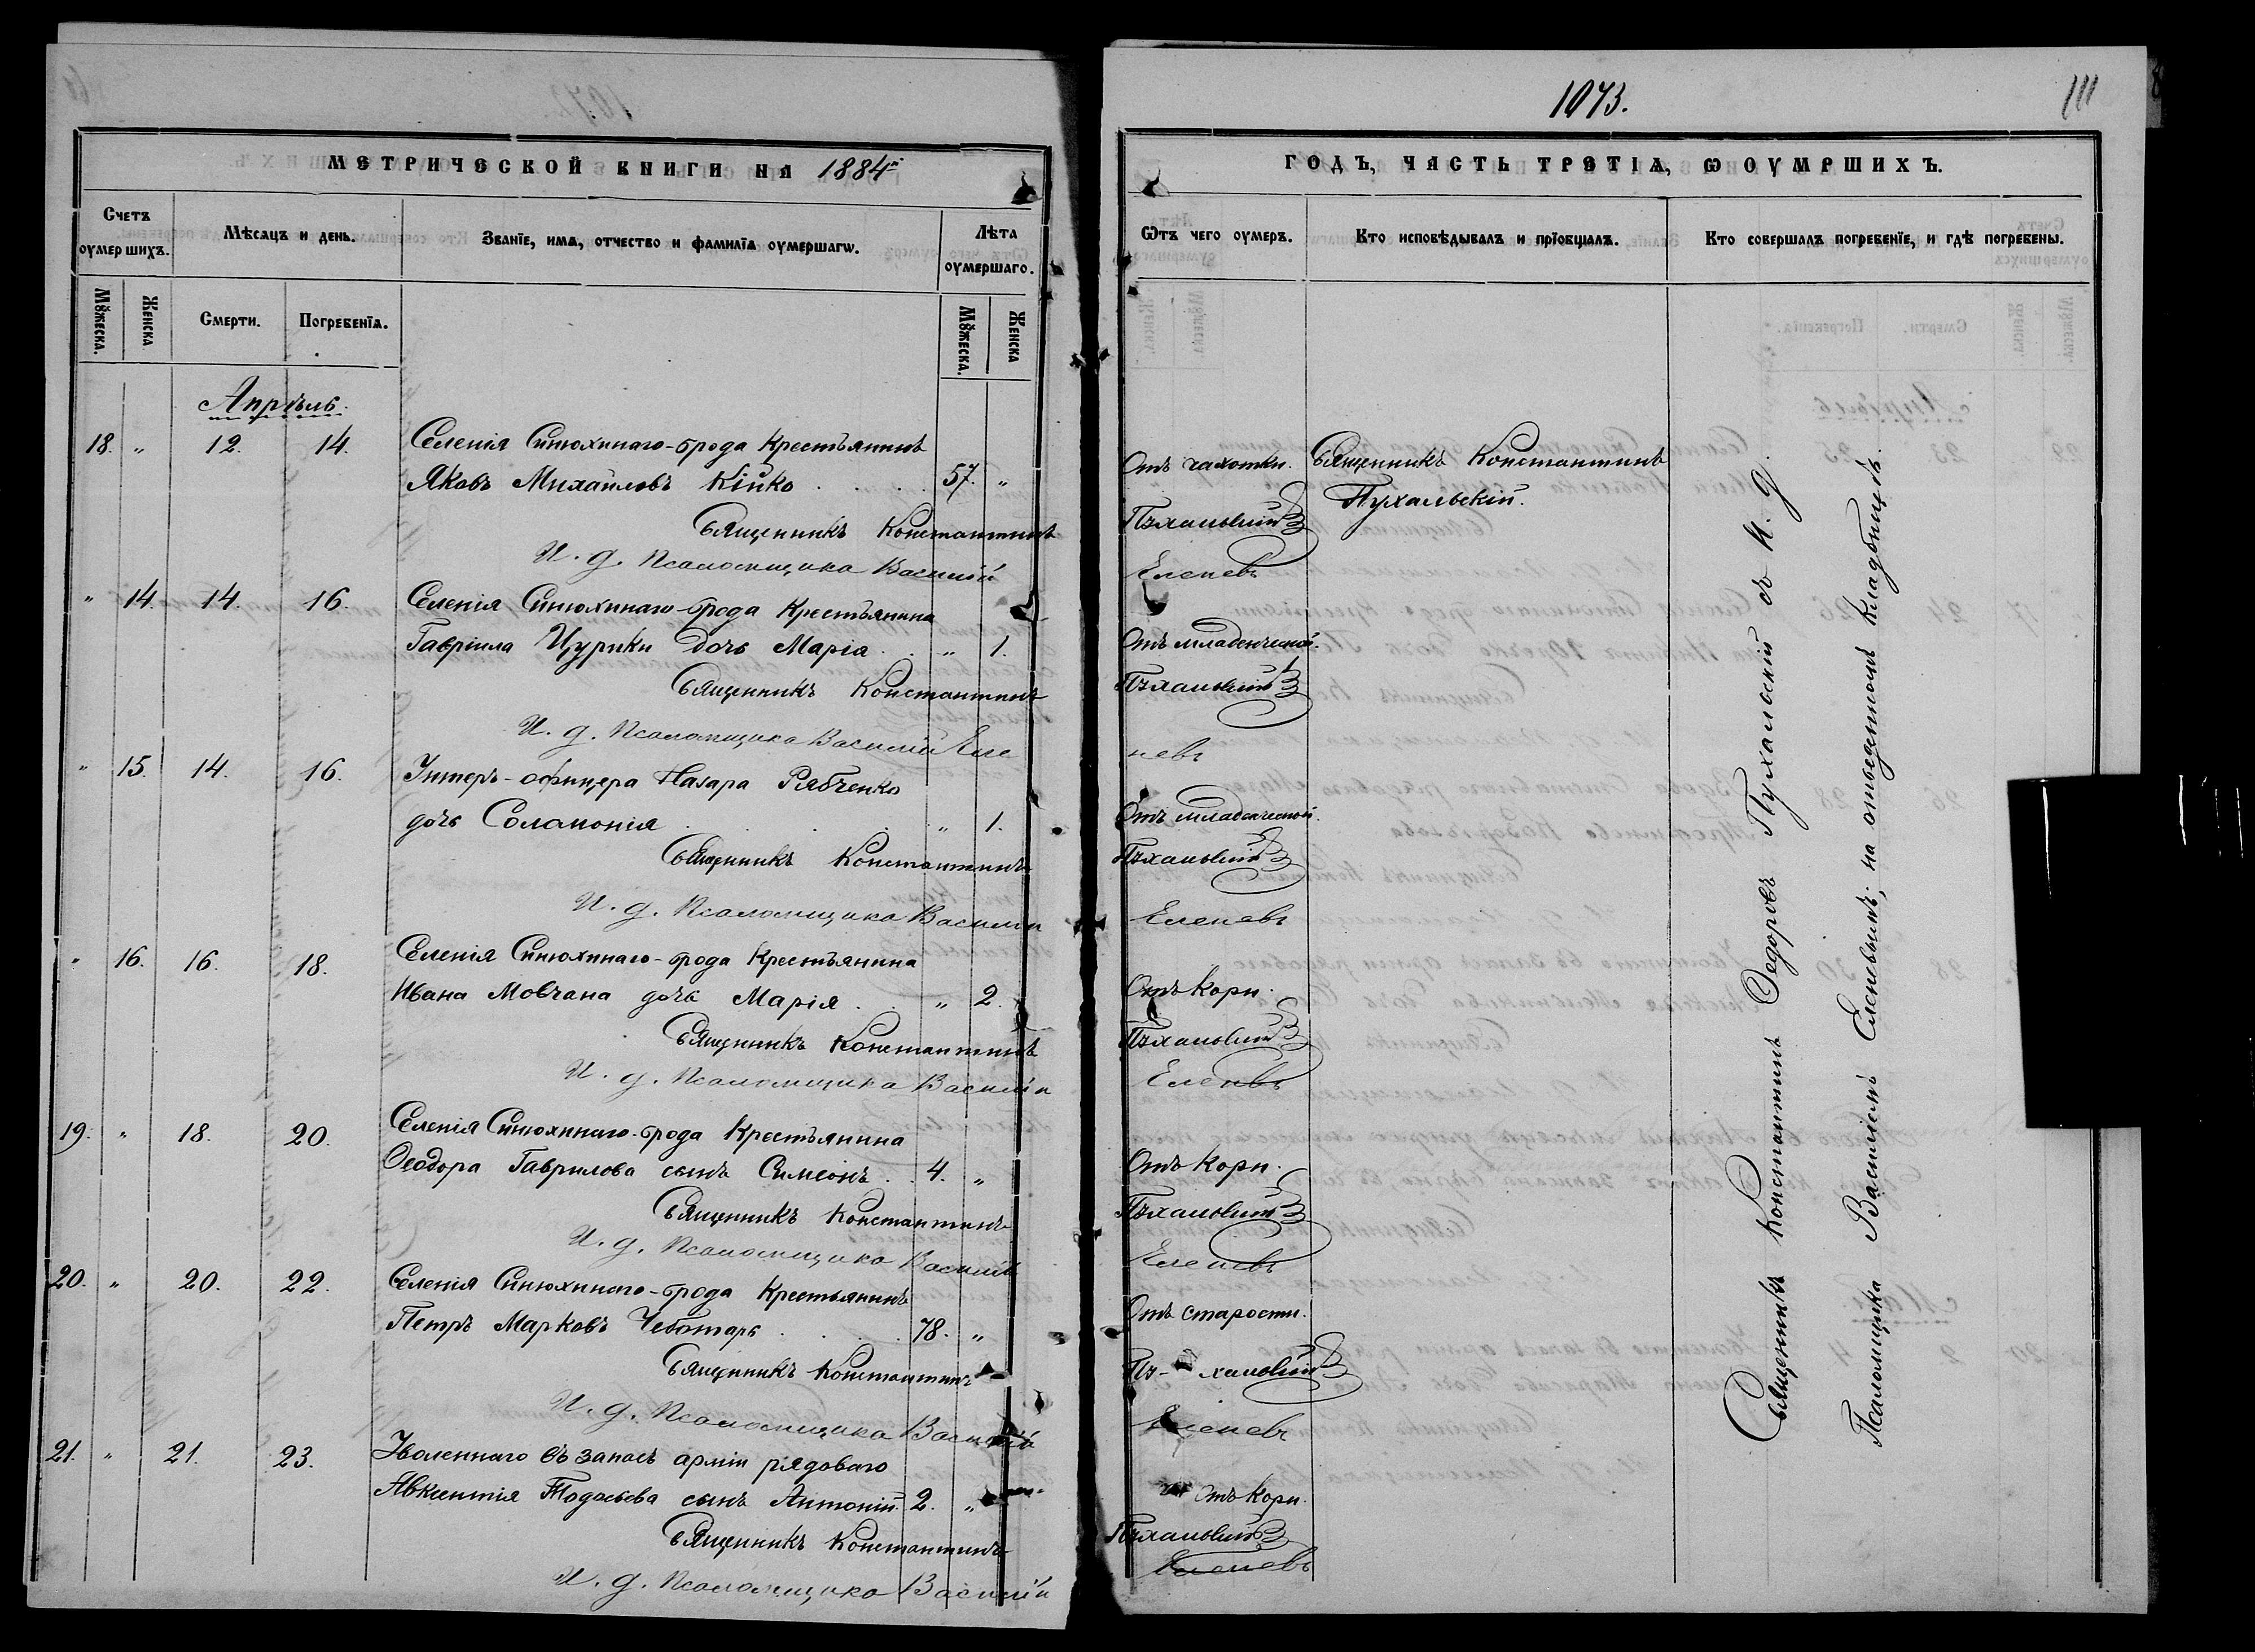 МЕТРИЧЕСКОЙ КНИГИ НА 1884й
Счетъ оумершихъ.
Мѣсяцъ и день.
Званїе, имѧ, отчество и фамилїѧ оумершагѡ.
Лѣта оумершаго.
Мꙋжеска.
Женска
Смерти.
Погребенїѧ.
Мꙋжеска.
Женска
Апрѣль.
18. „ 12. 14. Селенія Синюхинаго-брода Крестьянинъ
Яковъ Михайловъ Кійко . . . 57. „
Священникъ Константинъ
И. д. Псаломщика Василій
„ 14. 14. 16. Селенія Синюхинаго-брода Крестьянина
Гавріила Цурики дочь Марія . . „ 1.
Священникъ Константинъ
И. д. Псаломщика Василій Еле
„ 15. 14. 16. Унтеръ-офицера Назара Рябченко
дочь Соломонія . . . . „ 1.
Священникъ Константинъ
И. д. Псаломщика Василій
„ 16. 16. 18. Селенія Синюхинаго-брода Крестьянина
Ивана Мовчана дочь Марія . . „ 2.
Священникъ Константинъ
И. д. Псаломщика Василій
19. „ 18. 20. Селенія Синюхинаго-брода Крестьянина
Ѳеодора Гаврилова сынъ Симеонъ . . 4. „
Священникъ Константинъ
И. д. Псаломщика Василій
20. „ 20. 22. Селенія Синюхинаго-брода Крестьянинъ
Петръ Марковъ Чеботарь . . . . 78. „
Священникъ Константинъ
И. д. Псаломщика Василій
21. „ 21. 23. Уволеннаго въ запасъ арміи рядоваго
Авксентія сынъ Антоній. 2. „
Священникъ Константинъ
И. д. Псаломщика Василій
1073.
111
ГОДЪ, ЧАСТЬ ТРЕТІѦ, Ѡ ОУМЕРШИХЪ.
Ѿтъ чего оумеръ.
Кто исповѣдывалъ и прїобщалъ.
Кто совершалъ погребенїе, и гдѣ погребены.
Отъ чахотки. Священникъ Константинъ
Пухальскій.
Пухальскій
Еленевъ
Отъ младенческой.
Пухальскій
невъ
Отъ младенческой.
Пухальскій
Еленевъ
Отъ кори.
Пухальскій
Еленевъ
Отъ кори.
Пухальскій
Еленевъ
Отъ старости.
Пу-хальскій
Еленевъ
Отъ кори.
Пухальскій
Еленевъ
Священникъ Константинъ Ѳедоровъ Пухальскій съ и. д.
Псаломщика Василіемъ Еленевымъ; на отведенномъ кладбищѣ.